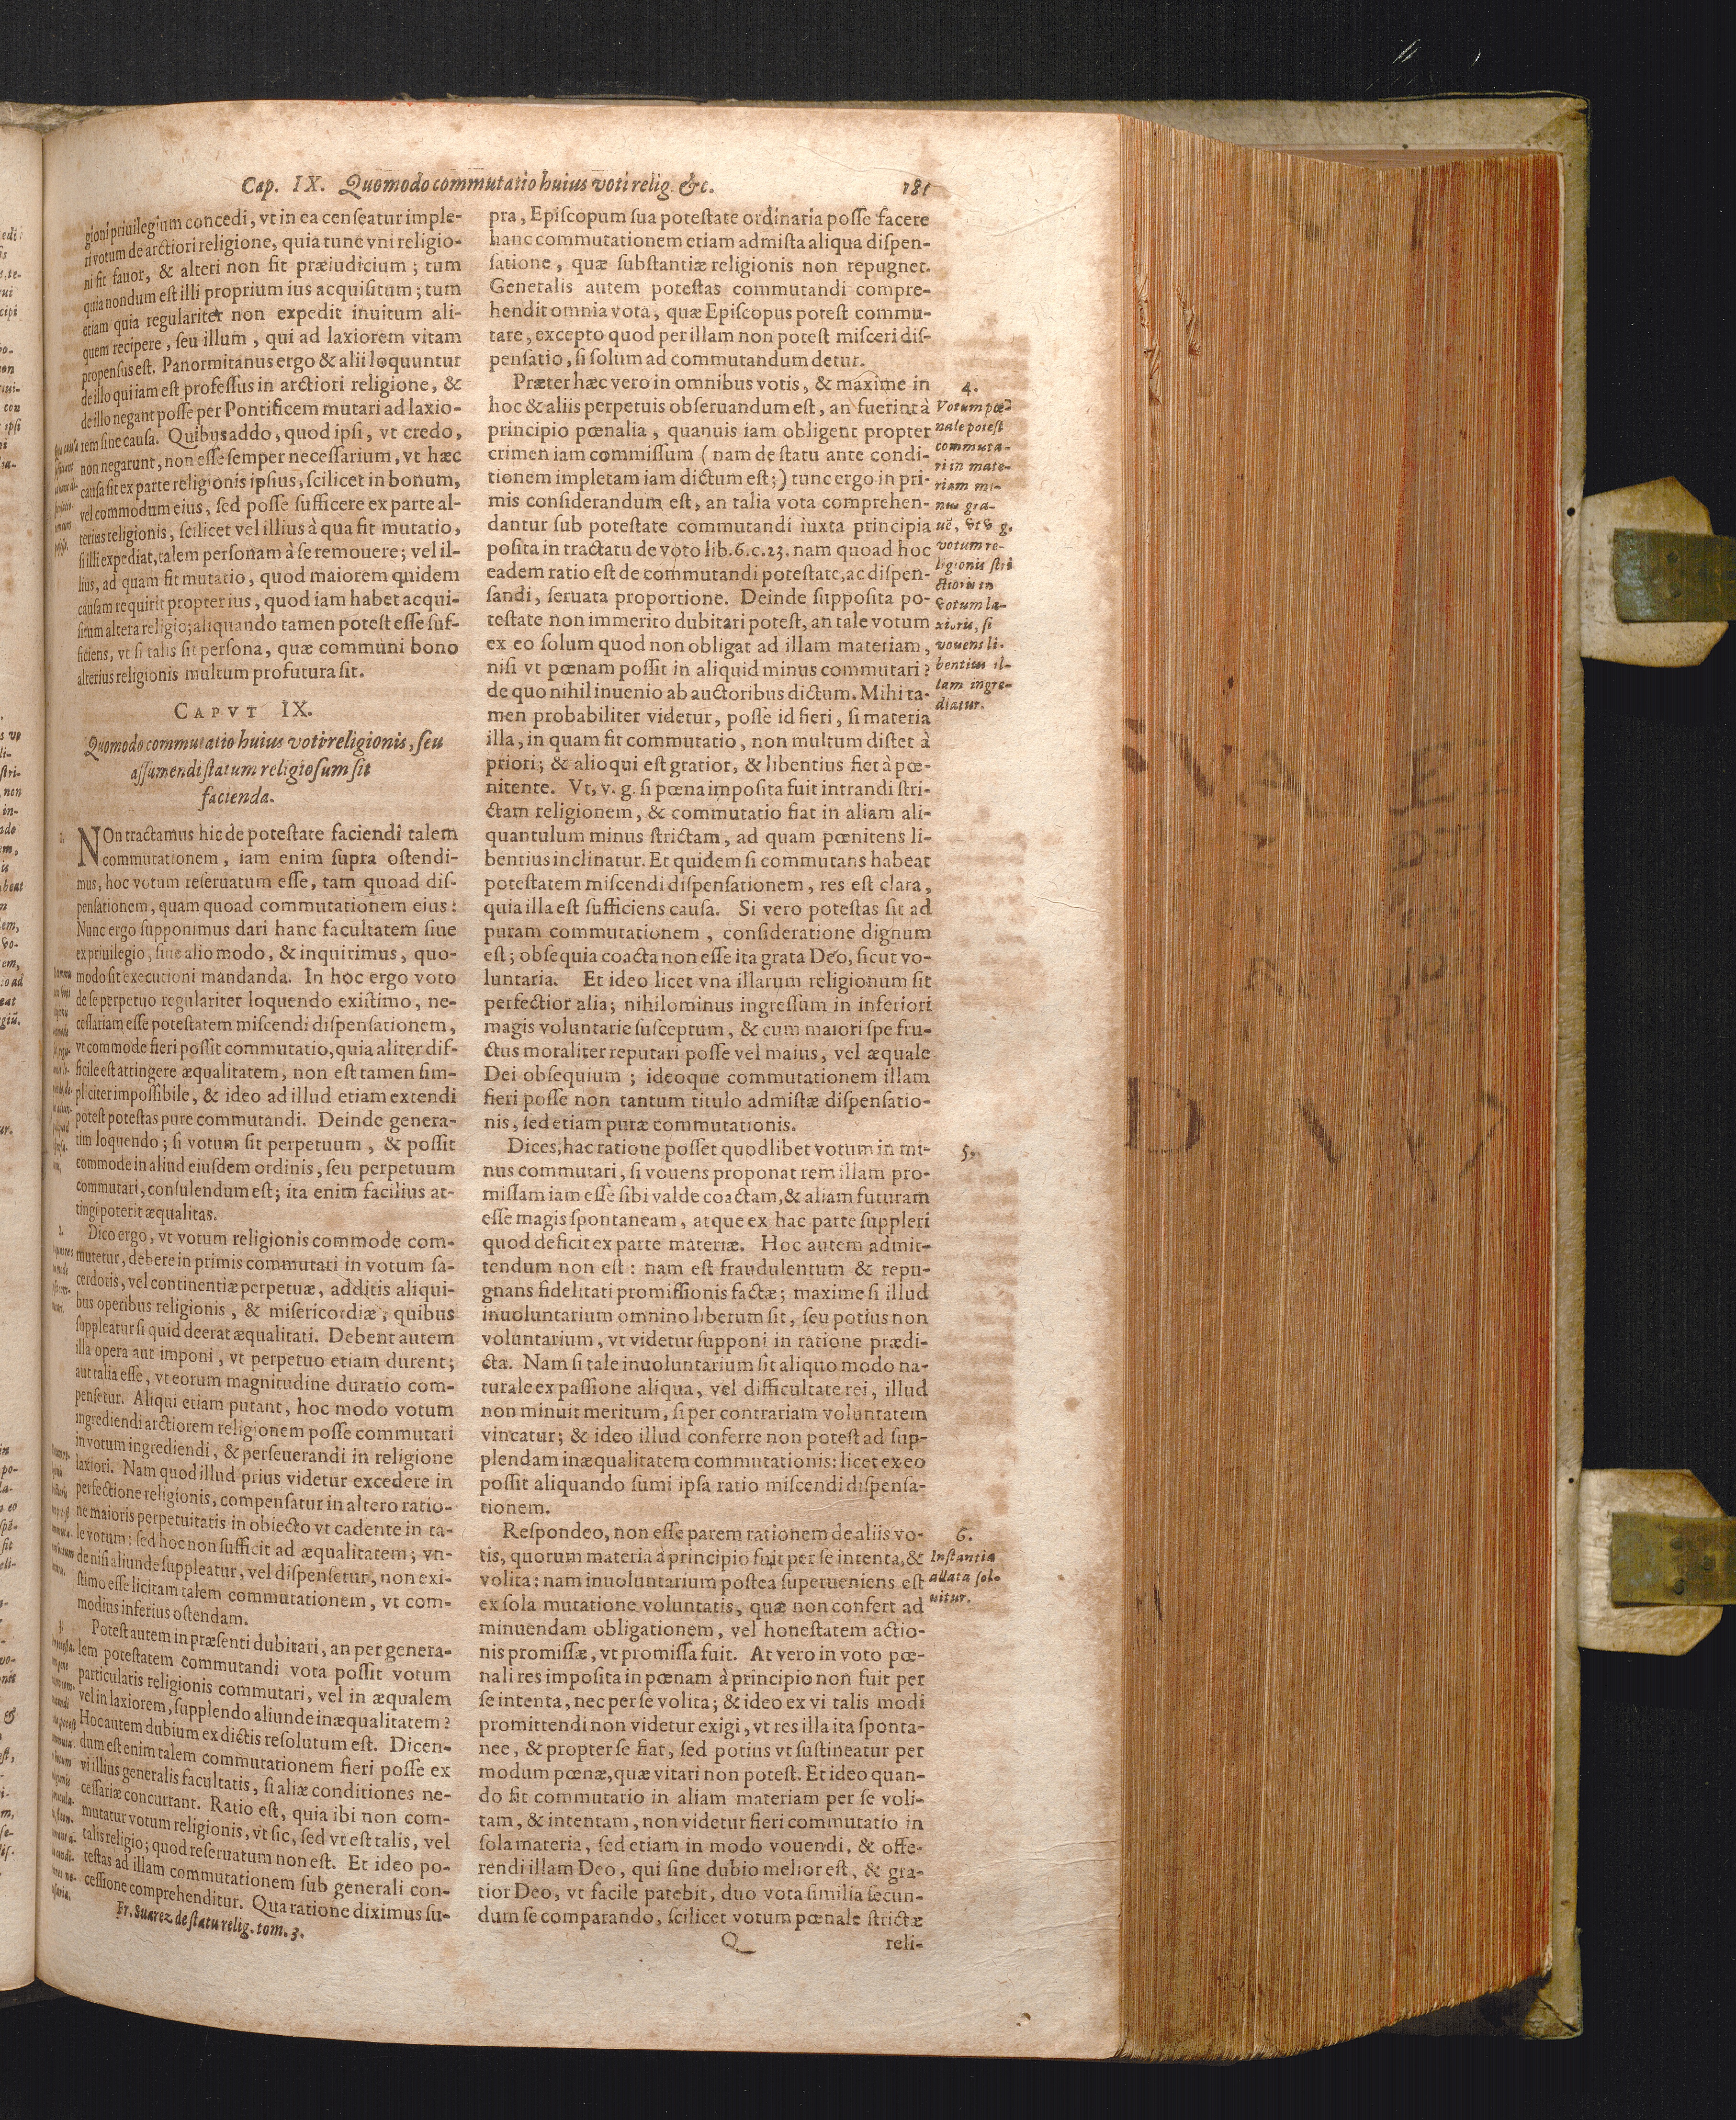 Cap. IX. Quomodo commutatio huius voti relig. &c. 181
gioni priuilegium concedi, vt in ea censeatur imple-
ri votum de arctiori religione, quia tunc vni religio-
ni fit fauor, & alteri non fit præiudicium; tum
quia nondum est illi proprium ius acquisitum; tum
etiam quia regulariter non expedit inuitum ali-
quem recipere, seu illum, qui ad laxiorem vitam
propensus est. Panormitanus ergo & alii loquuntur
de illo qui iam est professus in arctiori religione, &
de illo negant posse per Pontificem mutari ad laxio-
rem sine causa. Quibus addo, quod ipsi, vt credo,
non negarunt, non esse semper necessarium, vt hæc
causa sit ex parte religionis ipsius, scilicet in bonum,
vel commodum eius, sed posse sufficere ex parte al-
terius religionis, scilicet vel illius à qua fit mutatio,
si illi expediat, talem personam à se remouere; vel il-
lius, ad quam fit mutatio, quod maiorem quidem
causam requirit propter ius, quod iam habet acqui-
situm altera religio; aliquando tamen potest esse suf-
ficiens, vt si talis sit persona, quæ communi bono
alterius religionis multum profutura sit.
CAPVT IX.
Quomodo commutatio huius voti religionis, seu
assumendi statum religiosum sit
facienda.
NOn tractamus hic de potestate faciendi talem
commutationem, iam enim supra ostendi-
mus, hoc votum reseruatum esse, tam quoad dis-
pensationem, quam quoad commutationem eius:
Nunc ergo supponimus dari hanc facultatem siue
ex priuilegio, siue alio modo, & inquirimus, quo-
modo sit executioni mandanda. In hoc ergo voto
de se perpetuo regulariter loquendo existimo, ne-
cessariam esse potestatem miscendi dispensationem,
vt commode fieri possit commutatio, quia aliter dif-
ficile est attingere æqualitatem, non est tamen sim-
pliciter impossibile, & ideo ad illud etiam extendi
potest potestas pure commutandi. Deinde genera-
tim loquendo; si votum sit perpetuum, & possit
commode in aliud eiusdem ordinis, seu perpetuum
commutari, consulendum est; ita enim facilius at-
tingi poterit æqualitas.
2.
Dico ergo, vt votum religionis commode com-
mutetur, debere in primis commutari in votum sa-
cerdotis, vel continentiæ perpetuæ, additis aliqui-
bus operibus religionis, & misericordiæ, quibus
suppleatur si quid deerat æqualitati. Debent autem
illa opera aut imponi, vt perpetuo etiam durent;
aut talia esse, vt eorum magnitudine duratio com-
pensetur. Aliqui etiam putant, hoc modo votum
ingrediendi arctiorem religionem posse commutari
in votum ingrediendi, & perseuerandi in religione
laxiori. Nam quod illud prius videtur excedere in
perfectione religionis, compensatur in altero ratio-
ne maioris perpetuitatis in obiecto vt cadente in ta-
le votum: sed hoc non sufficit ad æqualitatem; vn-
de nisi aliunde suppleatur, vel dispensetur, non exi-
stimo esse licitam talem commutationem, vt com-
modius inferius ostendam.
3.
Potest autem in præsenti dubitari, an per genera-
lem potestatem commutandi vota possit votum
particularis religionis commutari, vel in æqualem
vel in laxiorem, supplendo aliunde inæqualitatem?
Hoc autem dubium ex dictis resolutum est. Dicen-
dum est enim talem commutationem fieri posse ex
vi illius generalis facultatis, si aliæ conditiones ne-
cessariæ concurrant. Ratio est, quia ibi non com-
mutatur votum religionis, vt sic, sed vt est talis, vel
talis religio; quod reseruatum non est. Et ideo po-
testas ad illam commutationem sub generali con-
cessione comprehenditur. Qua ratione diximus su-
Fr. Suarez de statu relig. tom. 3.
pra, Episcopum sua potestate ordinaria posse facere
hanc commutationem etiam admista aliqua dispen-
satione, quæ substantiæ religionis non repugnet.
Generalis autem potestas commutandi compre-
hendit omnia vota, quæ Episcopus potest commu-
tare, excepto quod per illam non potest misceri dis-
pensatio, si solum ad commutandum detur.
Præter hæc vero in omnibus votis, & maxime in
hoc & aliis perpetuis obseruandum est, an fuerint à
principio pœnalia, quanuis iam obligent propter
crimen iam commissum (nam de statu ante condi-
tionem impletam iam dictum est;) tunc ergo in pri-
mis considerandum est, an talia vota comprehen-
dantur sub potestate commutandi iuxta principia
posita in tractatu de voto lib. 6. c. 23. nam quoad hoc
eadem ratio est de commutandi potestate, ac dispen-
sandi, seruata proportione. Deinde supposita po-
testate non immerito dubitari potest, an tale votum
ex eo solum quod non obligat ad illam materiam,
nisi vt pœnam possit in aliquid minus commutari?
de quo nihil inuenio ab auctoribus dictum. Mihi ta-
men probabiliter videtur, posse id fieri, si materia
illa, in quam fit commutatio, non multum distet à
priori; & alioqui est gratior, & libentius fiet à pœ-
nitente. Vt, v. g. si pœna imposita fuit intrandi stri-
ctam religionem, & commutatio fiat in aliam ali-
quantulum minus strictam, ad quam pœnitens li-
bentius inclinatur. Et quidem si commutans habeat
potestatem miscendi dispensationem, res est clara,
quia illa est sufficiens causa. Si vero potestas sit ad
puram commutationem, consideratione dignum
est; obsequia coacta non esse ita grata Deo, sicut vo-
luntaria. Et ideo licet vna illarum religionum sit
perfectior alia; nihilominus ingressum in inferiori
magis voluntarie susceptum, & cum maiori spe fru-
ctus moraliter reputari posse vel maius, vel æquale
Dei obsequium; ideoque commutationem illam
fieri posse non tantum titulo admistæ dispensatio-
nis, sed etiam puræ commutationis.
Dices, hac ratione posset quodlibet votum in mi-
nus commutari, si vouens proponat rem illam pro-
missam iam esse sibi valde coactam, & aliam futuram
esse magis spontaneam, atque ex hac parte suppleri
quod deficit ex parte materiæ. Hoc autem admit-
tendum non est: nam est fraudulentum & repu-
gnans fidelitati promissionis factæ; maxime si illud
inuoluntarium omnino liberum sit, seu potius non
voluntarium, vt videtur supponi in ratione prædi-
cta. Nam si tale inuoluntarium sit aliquo modo na-
turale ex passione aliqua, vel difficultate rei, illud
non minuit meritum, si per contrariam voluntatem
vincatur; & ideo illud conferre non potest ad sup-
plendam inæqualitatem commutationis: licet ex eo
possit aliquando sumi ipsa ratio miscendi dispensa-
tionem.
Respondeo, non esse parem rationem de aliis vo-
tis, quorum materia à principio fuit per se intenta, &
volita: nam inuoluntarium postea superueniens est
ex sola mutatione voluntatis, quæ non confert ad
minuendam obligationem, vel honestatem actio-
nis promissæ, vt promissa fuit. At vero in voto pœ-
nali res imposita in pœnam à principio non fuit per
se intenta, nec per se volita; & ideo ex vi talis modi
promittendi non videtur exigi, vt res illa ita sponta-
nee, & propter se fiat, sed potius vt sustineatur per
modum pœnæ, quæ vitari non potest. Et ideo quan-
do fit commutatio in aliam materiam per se voli-
tam, & intentam, non videtur fieri commutatio in
sola materia, sed etiam in modo vouendi, & offe-
rendi illam Deo, qui sine dubio melior est, & gra-
tior Deo, vt facile patebit, duo vota similia secun-
dum se comparando, scilicet votum pœnale strictæ
Q reli-
4.
Votum pœ-
nale potest
commuta-
ri in mate-
riam mi-
nus gra-
uē, vt v. g.
votum re-
ligionis stri
ctioris in
votum la-
xioris, si
vouens li-
bentius il-
lam ingre-
diatur.
5.
6.
Instantia
allata sol-
uitur.